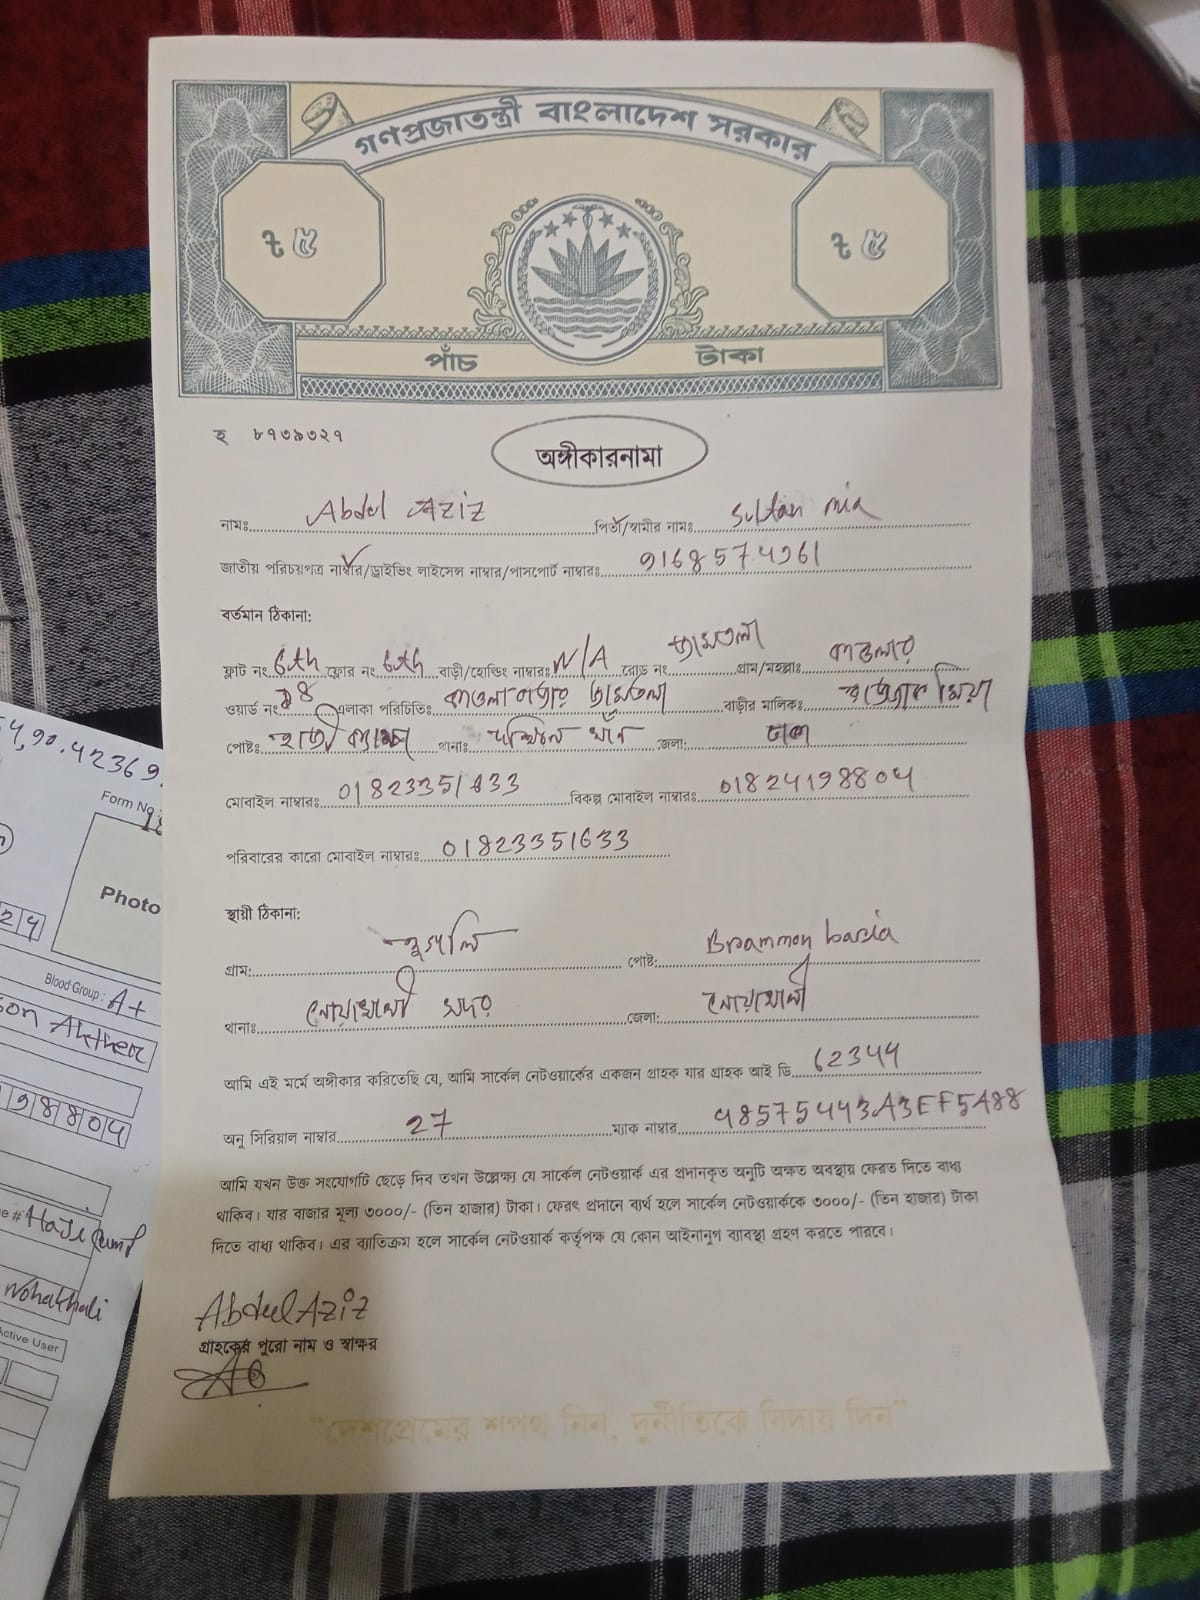 গণপ্রজাতন্ত্রী বাংলাদেশ সরকার
৳ ৫ ৳ ৫
পাঁচ টাকা
হ ৮৭৩৯৩২৭
অঙ্গীকারনামা
নামঃ Abdul Aziz পিতা/স্বামীর নামঃ Sultan mia
জাতীয় পরিচয়পত্র নাম্বার/ড্রাইভিং লাইসেন্স নাম্বার/পাসপোর্ট নাম্বারঃ
বর্তমান ঠিকানা:
ফ্লাট নং 6th ফ্লোর নং 6th বাড়ী/হোল্ডিং নাম্বারঃ N/A রোড নং আমতলা গ্রাম/মহল্লাঃ কাওলার
ওয়ার্ড নং এলাকা পরিচিতিঃ কাওলা বাজার আমতলা বাড়ীর মালিকঃ মিয়া
পোষ্টঃ হাজী ক্যাম্প থানাঃ দক্ষিণ খাঁন জেলা: ঢাকা
মোবাইল নাম্বারঃ বিকল্প মোবাইল নাম্বারঃ 01824198804
পরিবারের কারো মোবাইল নাম্বারঃ 01823351633
স্থায়ী ঠিকানা:
গ্রাম: পোষ্ট: Brammon baria
থানাঃ নোয়াখালী সদর জেলা: নোয়াখালী
আমি এই মর্মে অঙ্গীকার করিতেছি যে, আমি সার্কেল নেটওয়ার্কের একজন গ্রাহক যার গ্রাহক আই ডি 62344
অনু সিরিয়াল নাম্বার 27 ম্যাক নাম্বার 48575443A3EF5A88
আমি যখন উক্ত সংযোগটি ছেড়ে দিব তখন উল্লেক্ষ্য যে সার্কেল নেটওয়ার্ক এর প্রদানকৃত অনুটি অক্ষত অবস্থায় ফেরত দিতে বাধ্য
থাকিব। যার বাজার মূল্য ৩০০০/- (তিন হাজার) টাকা। ফেরৎ প্রদানে ব্যর্থ হলে সার্কেল নেটওয়ার্ককে ৩০০০/- (তিন হাজার) টাকা
দিতে বাধ্য থাকিব। এর ব্যাতিক্রম হলে সার্কেল নেটওয়ার্ক কর্তৃপক্ষ যে কোন আইনানুগ ব্যাবস্থা গ্রহণ করতে পারবে।
Abdul Aziz
গ্রাহকের পুরো নাম ও স্বাক্ষর
"দেশপ্রেমের শপথ নিন, দুর্নীতিকে বিদায় দিন"
Form No
Photo
Blood Group : A+
Akther
Haji
Nohakhali
Active User